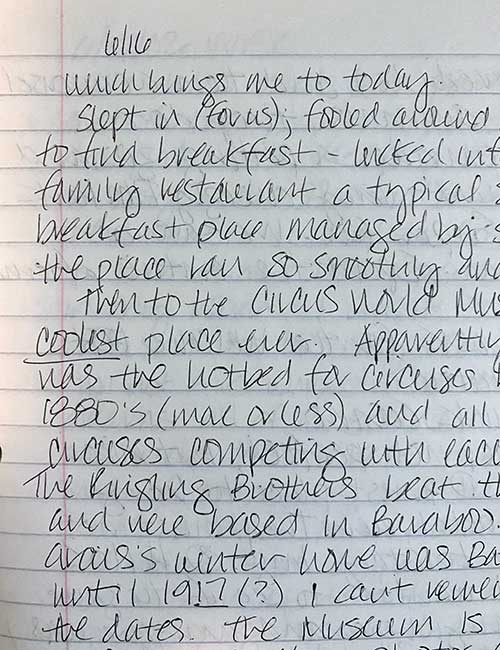 6/16
which brings me to today.
Slept in (for us); fooled around
to find breakfast - lucked int
family restaurant a typical
breakfast place managed by
the place ran so smoothly and
Then to the Circus World Mu
coolest place ever. Apparently
was the hotbed for circuses
1880's (more or less) and all
circuses competing with eac
The Ringling Brothers beat th
and were based in Baraboo.
circus's winter home was Ba
until 1917 (?) I can't reme
the dates. The Museum is